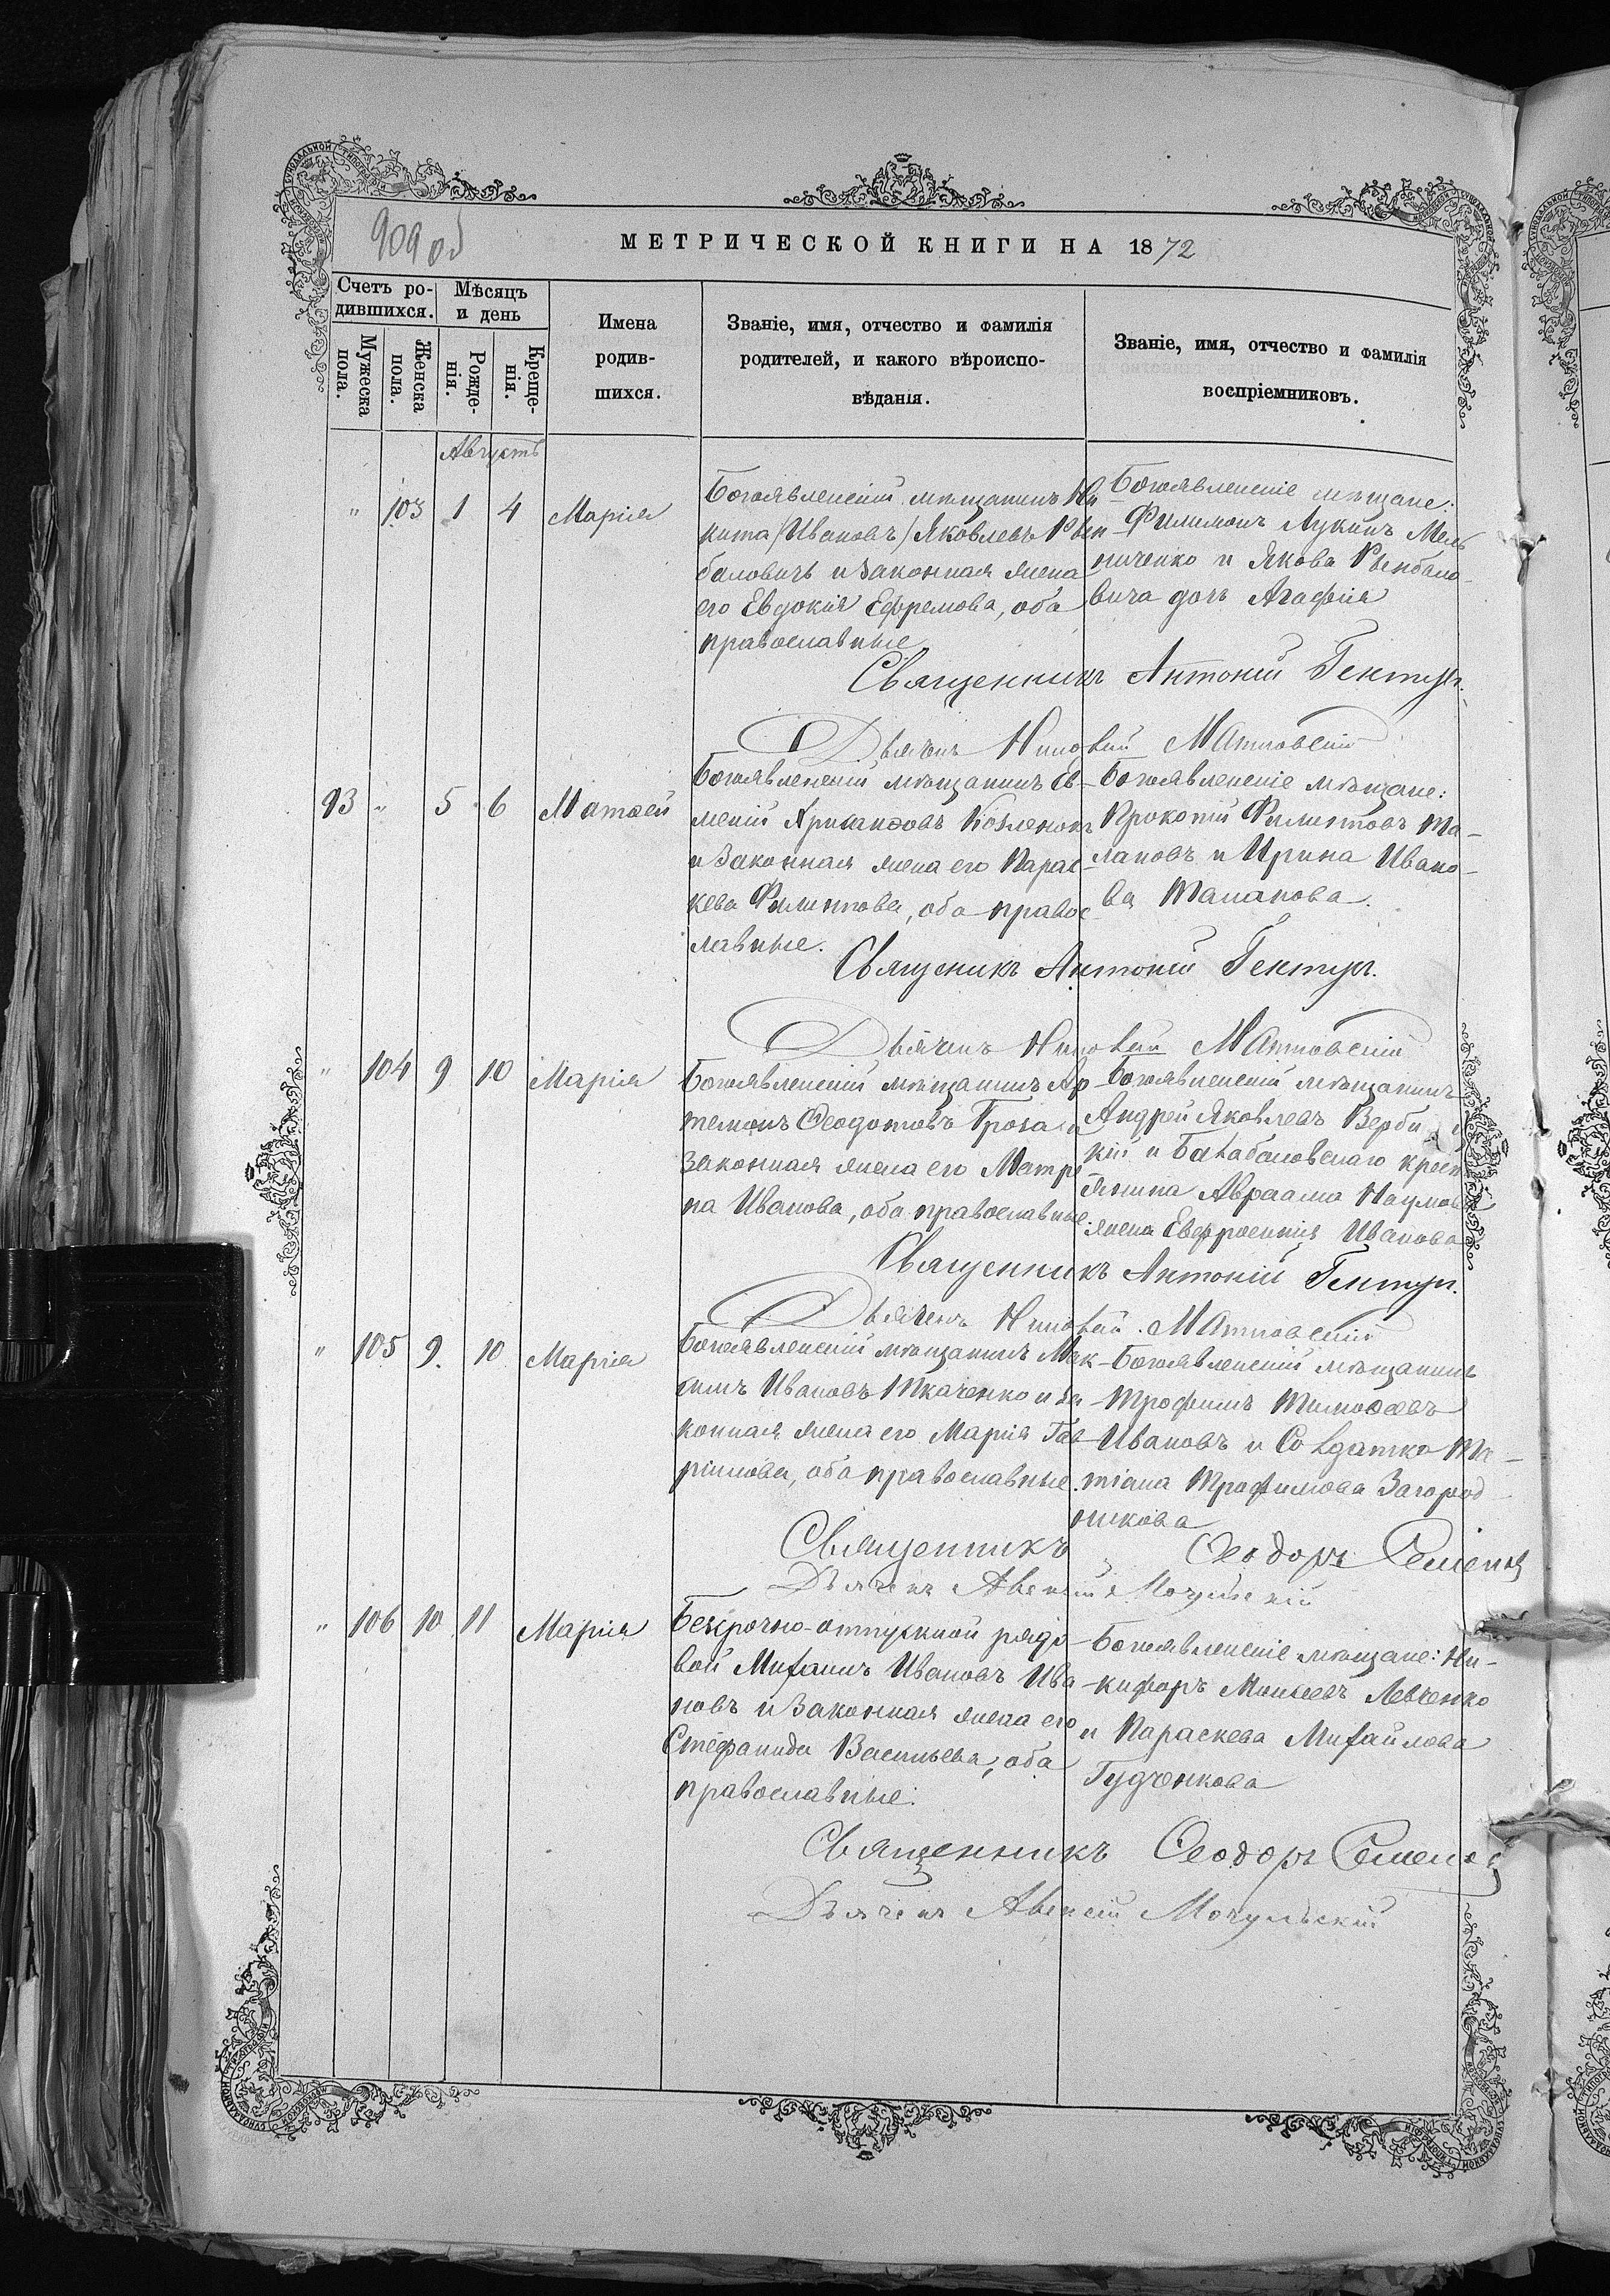 909 об
МЕТРИЧЕСКОЙ КНИГИ НА 1872
Счетъ ро-
дившихся.
Мѣсяцъ
и день
Мужеска
пола.
Женска
пола.
Рожде-
нія.
Креще-
нія.
Имена
родив-
шихся.
Званіе, имя, отчество и фамилія
родителей, и какого вѣроиспо-
вѣданія.
Званіе, имя, отчество и фамилія
воспріемниковъ.
Августъ
" 103 1 4 Марія
Богоявленскій мѣщанинъ Ни
кита (Ивановъ) Яковлевъ
и законная жена
его Евдокія Ефремова, оба
православные
Богоявленскіе мѣщане:
Филимонъ Лукинъ Мель
ниченко и Якова
вича дочь Агафія
Священникъ Антоній Гентуръ.
Дьячекъ
93 " 5 6 Матѳей
Богоявленскій мѣщанинъ Ев-
меній Козленокъ
и законная жена его Парас-
кева Филиппова, оба правос-
лавные.
Богоявленскіе мѣщане:
Прокопій Филиповъ Та-
лановъ и Ирина Ивано-
ва Таланова.
Священикъ Антоній Гентуръ.
Дьячекъ
" 104 9 10 Марія
Богоявленскій мѣщанинъ Ар
темонъ Ѳеодотовъ Гроза и
законная жена его Матро
на Иванова, оба православные.
Богоявленскій мѣщанинъ
Андрей Яковлевъ Верби
кій и Балабановскаго крест
янина Авраама Наумова
жена Евфросинія Иванова
Священникъ Антоній Гентуръ.
Дьячекъ
" 105 9. 10 Марія
Богоявленскій мѣщанинъ Мак-
симъ Ивановъ Ткаченко и за
конная жена его Марія Гав-
ріилова, оба православные.
Богоявленскій мѣщанинъ
Трофимъ Тимоѳеевъ
Ивановъ и Солдатка Та-
тіана Трофимова Загород
никова
Священникъ Ѳеодоръ
Дьячекъ Авксентій Мочульскій
" 106 10 11 Марія
Безсрочно-отпускной рядо
вой Михаилъ Ивановъ Ива
новъ и законная жена его
Стефанида Васильева, оба
православные.
Богоявленскіе мѣщане: Ни-
кифоръ Моисеевъ Левченко
и Параскева Михайлова
Гудченкова
Священникъ Ѳеодоръ
Дьячекъ Мочульскій